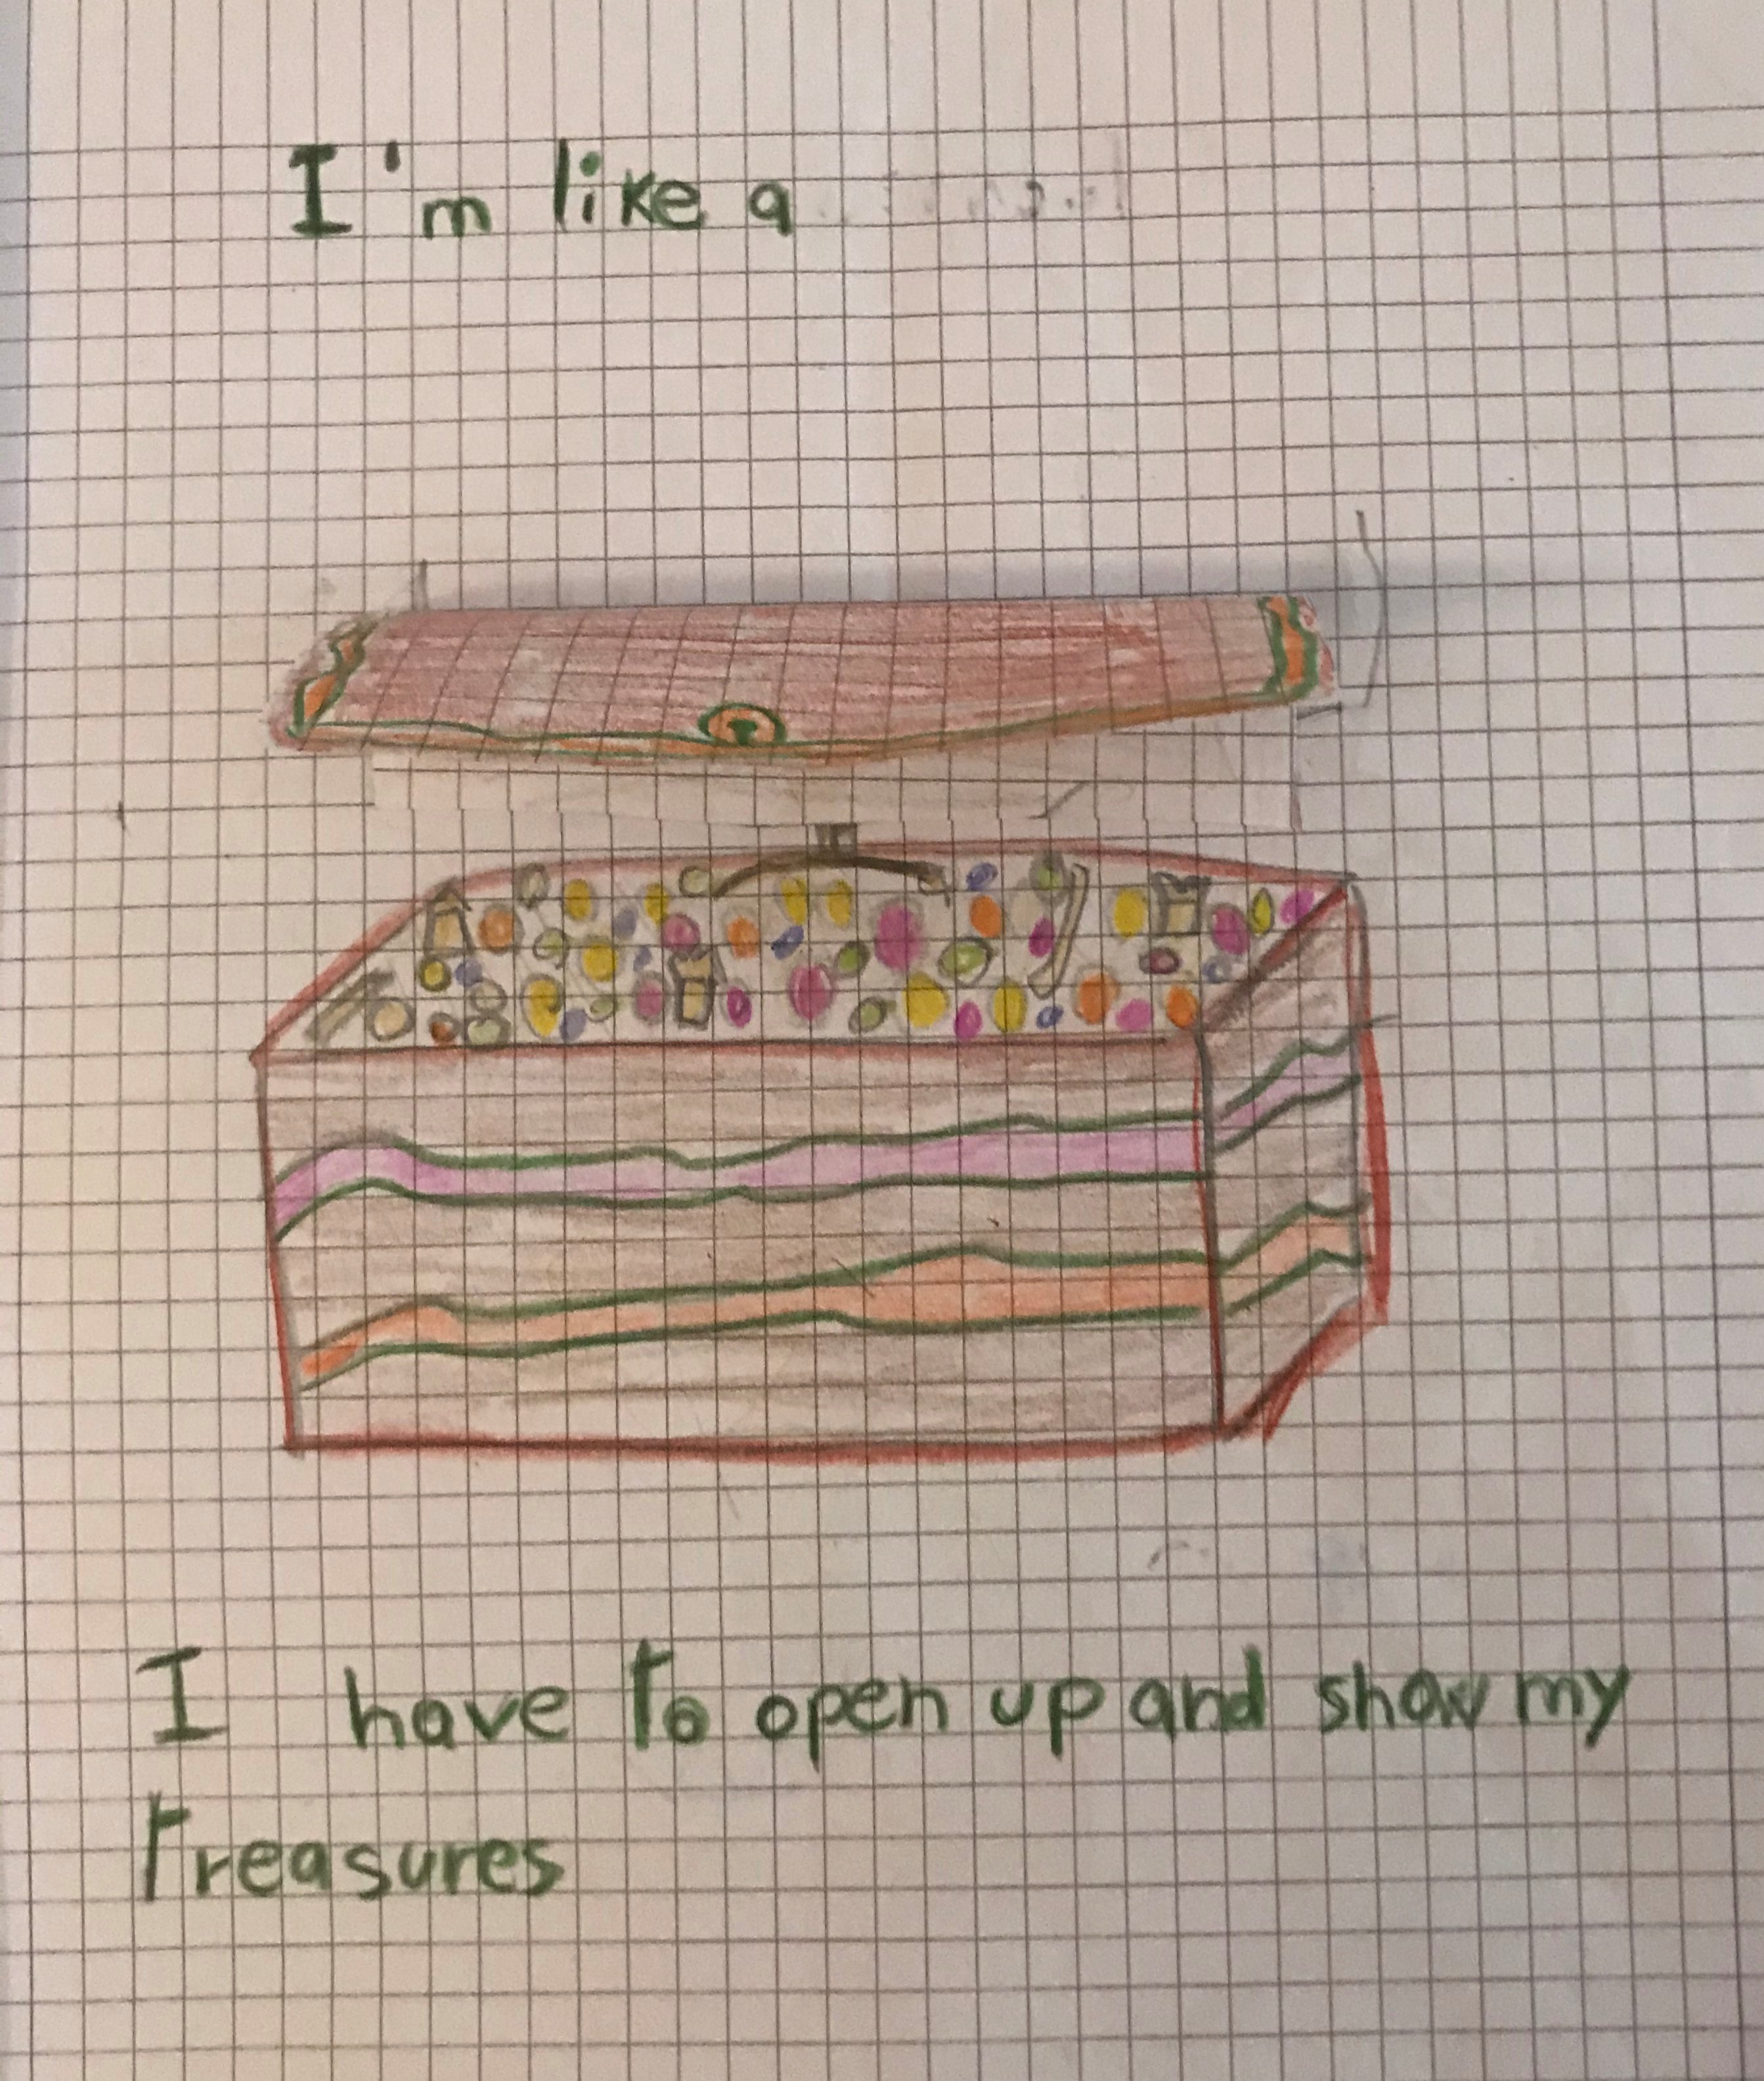 I'm like a
I have to open up and show my
treasures